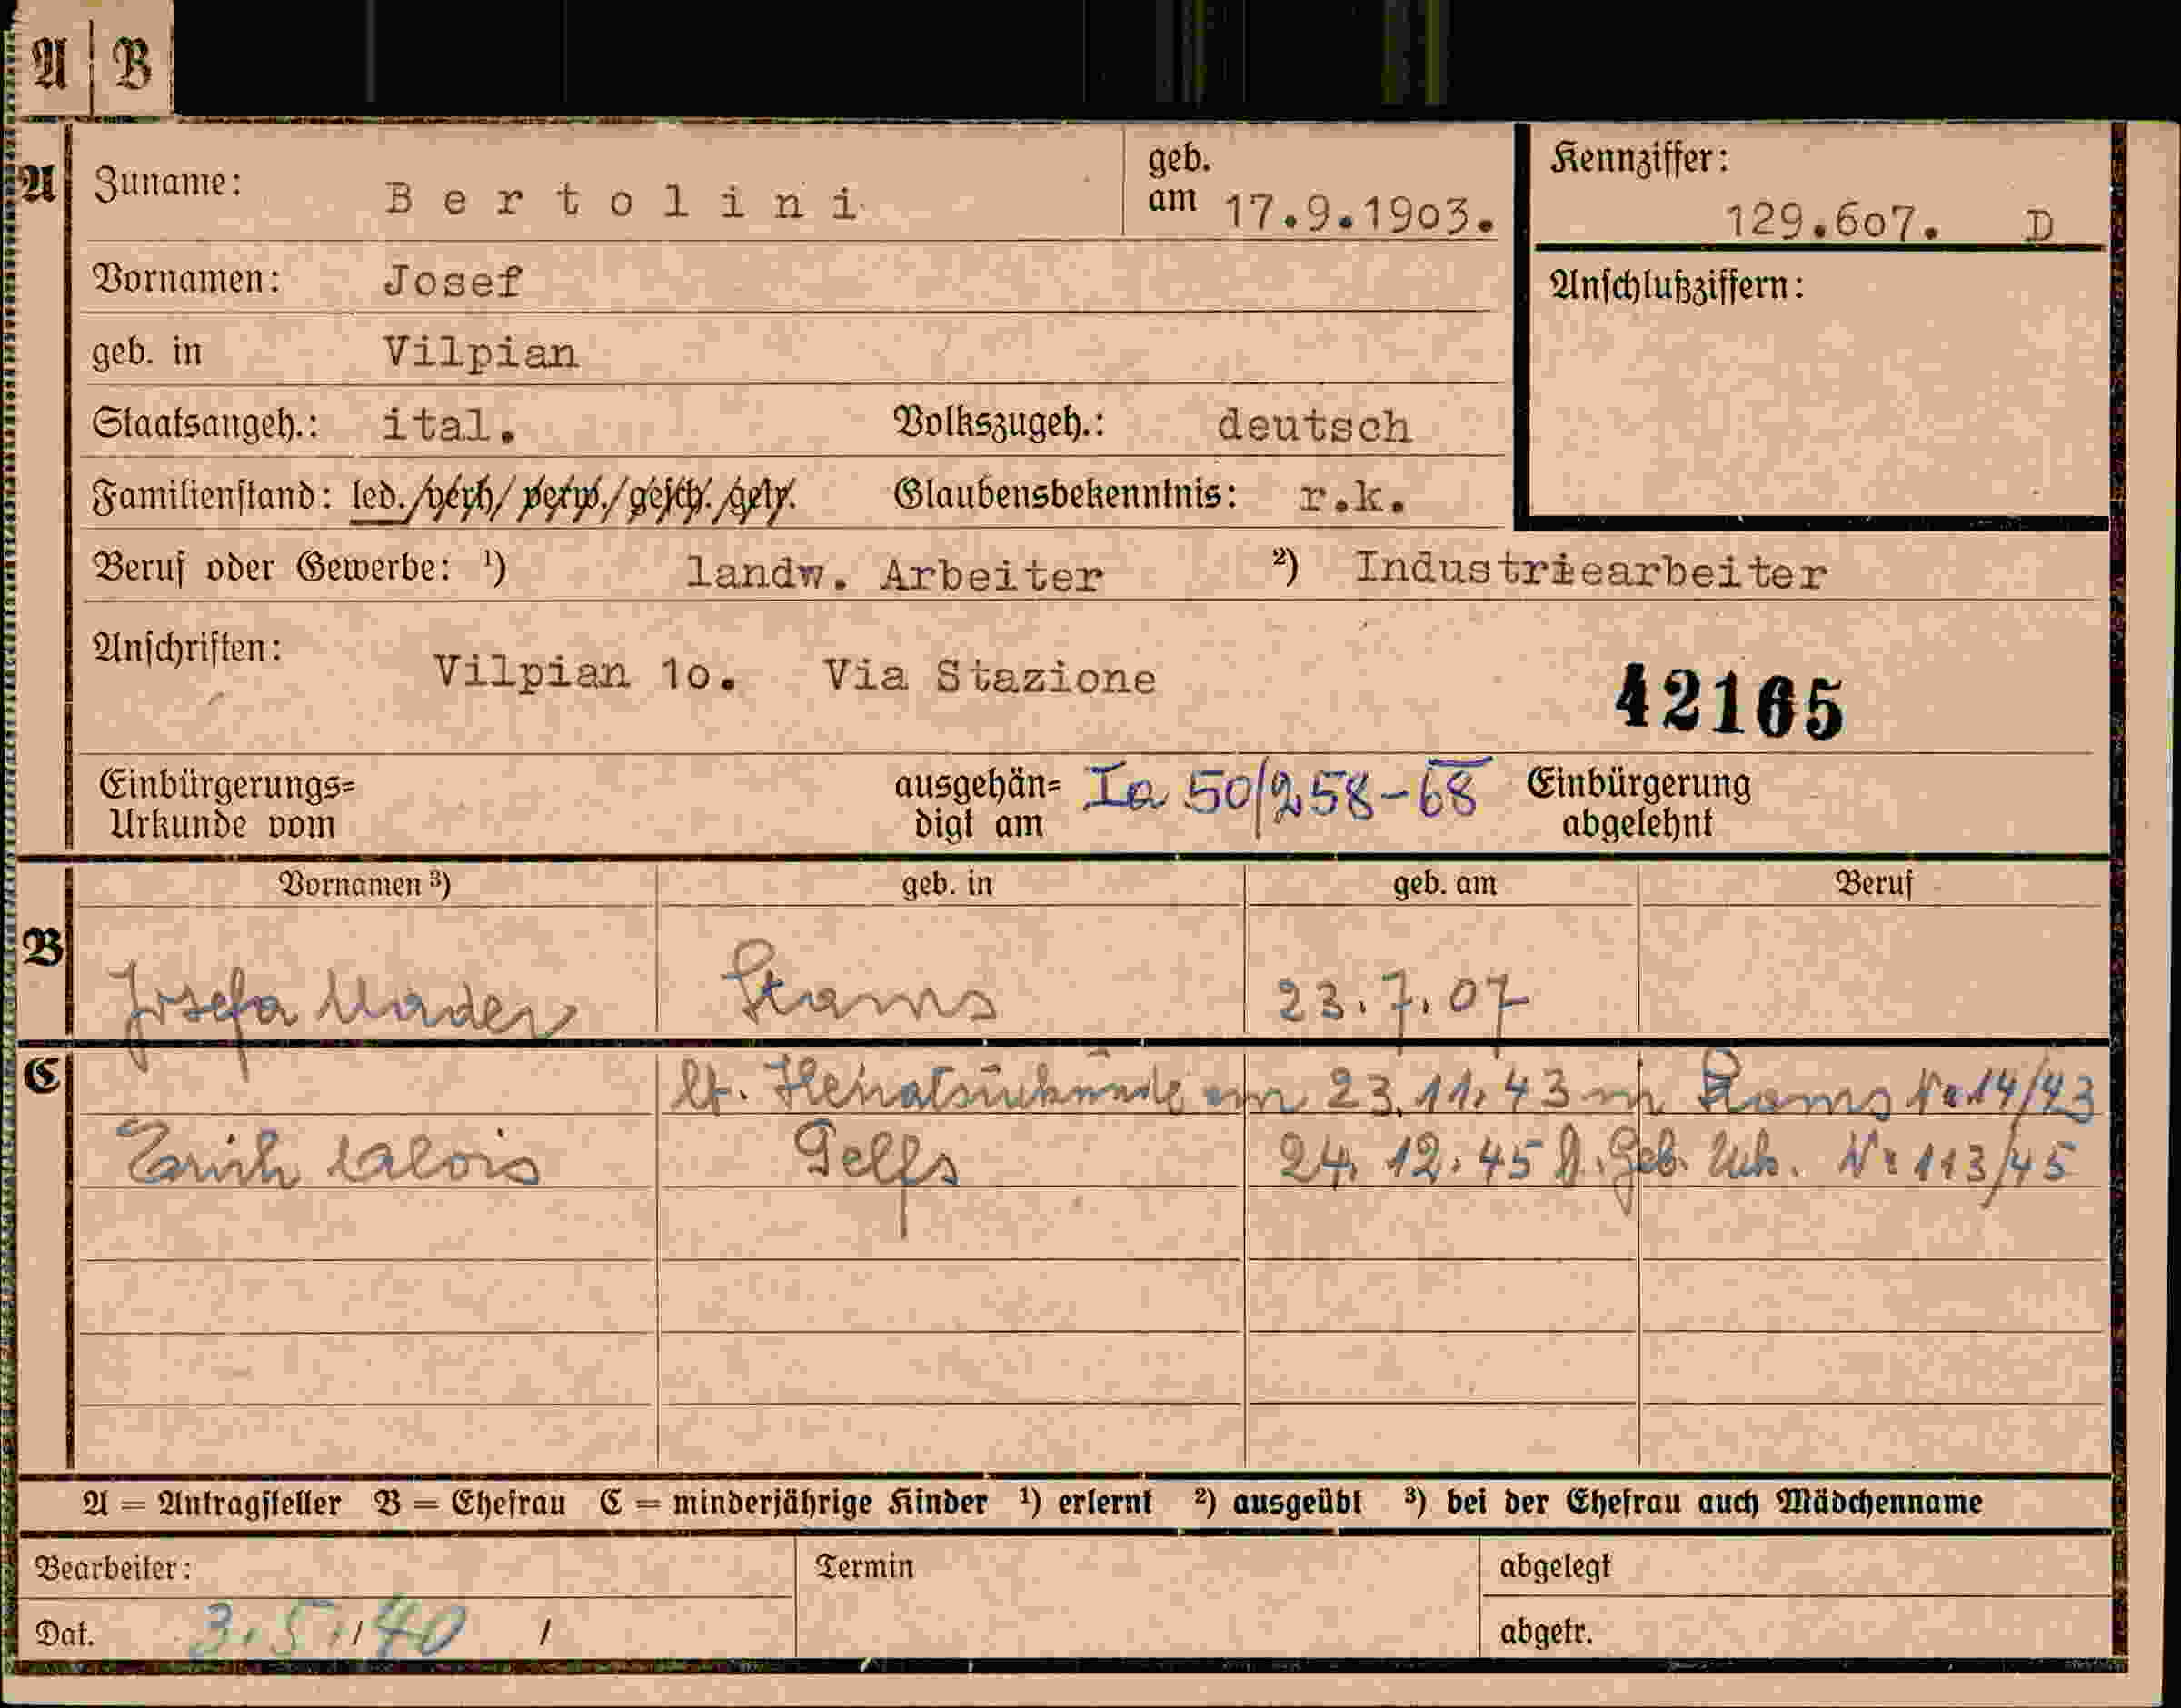 A | B
A Zuname: Bertolini geb. am 17.9.1903. Kennziffer: 129.607. D
Vornamen: Josef Anschlußziffern:
geb. in Vilpian
Staatsangeh.: ital. Volkszugeh.: deutsch
Familienstand: led./verh/verw./gesch./getr. Glaubensbekenntnis: r.k.
Beruf oder Gewerbe: 1) landw. Arbeiter 2) Industriearbeiter
Anschriften: Vilpian 10. Via Stazione 42165
Einbürgerungs= ausgehän= Ia 50/258-68 Einbürgerung
Urkunde vom digt am abgelehnt
Vornamen 3) geb. in geb. am Beruf
B Josefa Mader Stams 23.7.07
C lt. Heiratsurkunde am 23.11.43 in Stams Nr 14/43
Erich Alois Telfs 24.12.45 lt. Geb. Urk. Nr 113/45
A = Antragsteller B = Ehefrau C = minderjährige Kinder 1) erlernt 2) ausgeübt 3) bei der Ehefrau auch Mädchenname
Bearbeiter: Termin abgelegt
Dat. 3.5./40 / abgetr.